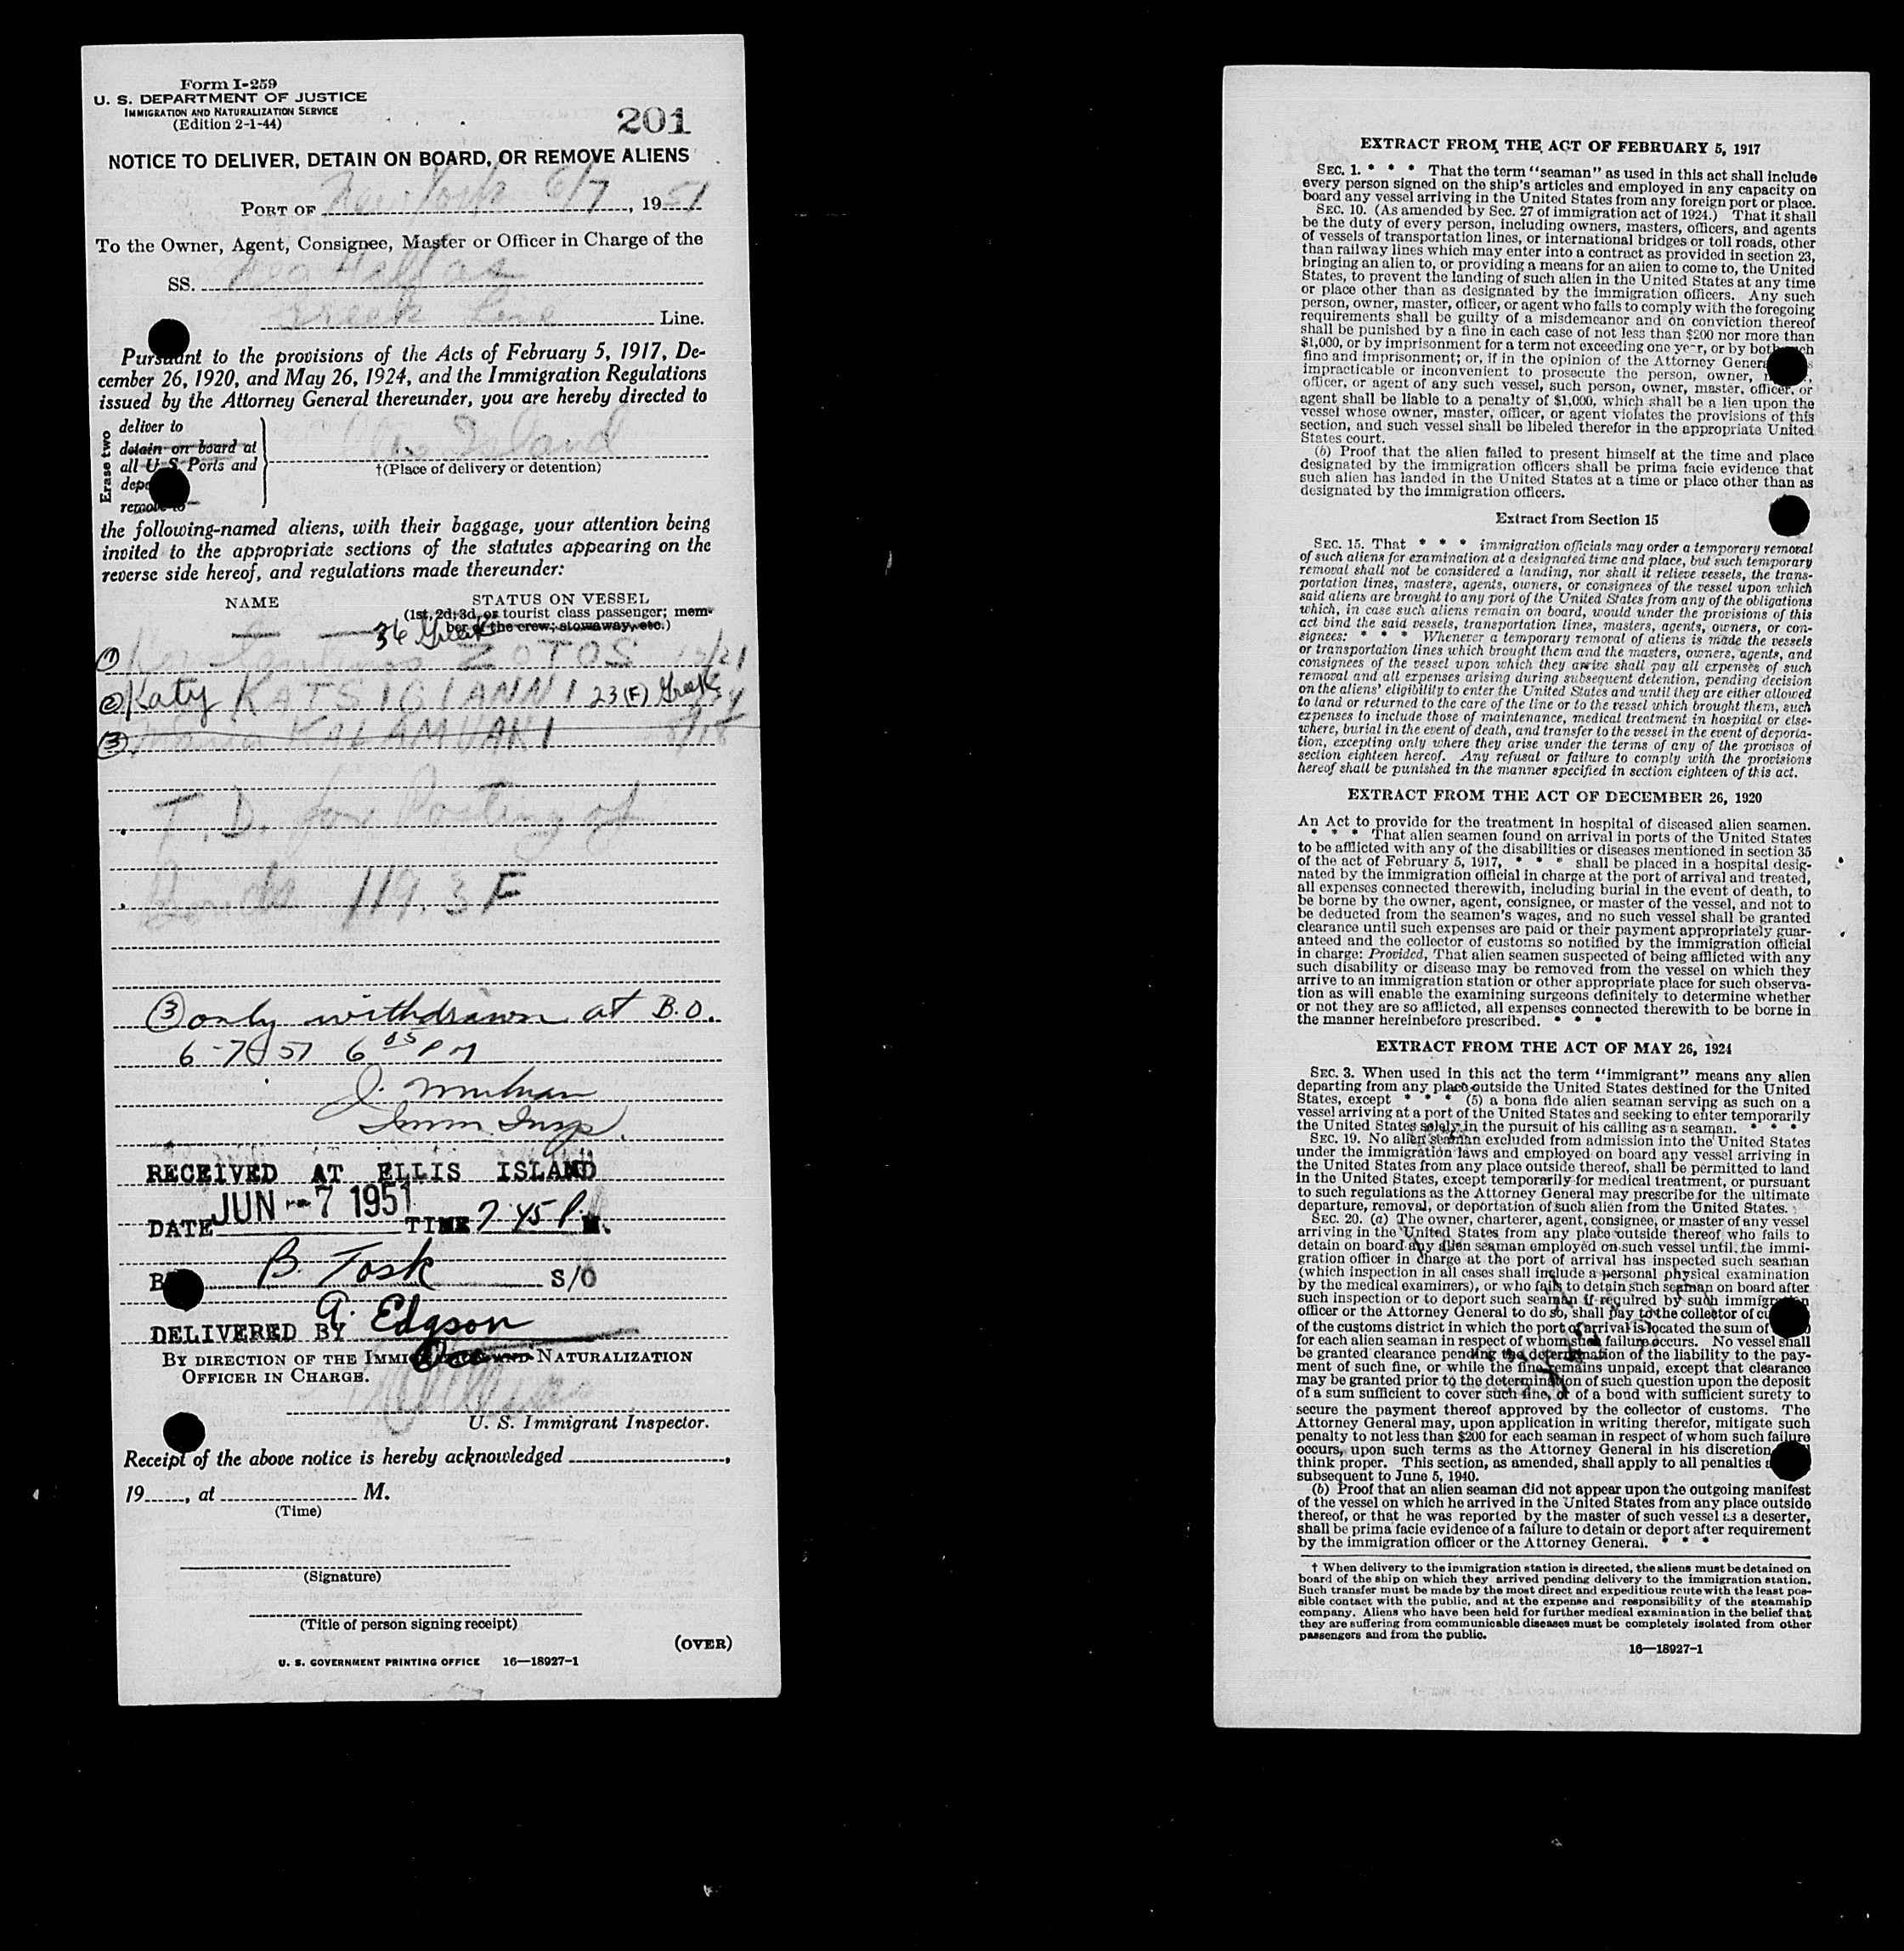 Form I-259
U. S. DEPARTMENT OF JUSTICE
IMMIGRATION AND NATURALIZATION SERVICE
(Edition 2-1-44)
201
NOTICE TO DELIVER, DETAIN ON BOARD, OR REMOVE ALIENS
PORT OF New York 6/7, 1951
To the Owner, Agent, Consignee, Master or Officer in Charge of the
SS. Nea Hellas
Greek Line Line.
Pursuant to the provisions of the Acts of February 5, 1917, De-
cember 26, 1920, and May 26, 1924, and the Immigration Regulations
issued by the Attorney General thereunder, you are hereby directed to
Erase two
deliver to
detain on board at
all U S Ports and
remove to
Island
†(Place of delivery or detention)
the following-named aliens, with their baggage, your attention being
invited to the appropriate sections of the statutes appearing on the
reverse side hereof, and regulations made thereunder:
NAME
STATUS ON VESSEL
(1st, 2d, 3d, or tourist class passenger; mem-
ber of the crew; stowaway, etc.)
36 Greek
① Konstantinos ZOTOS 15/21
② Katy KATSIGIANNI 23 (F) Greek
③ Maria KALAMVAKI 8/18
T. D. for Posting of
Bonds 119.3 F
③ only withdrawn at B.O.
6-7-51 6 05 PM
Imm. Insp.
RECEIVED AT ELLIS ISLAND
DATE JUN -7 1951 TIME 7 45 P. M.
B. Tosk S/O
DELIVERED BY A. Edgson
BY DIRECTION OF THE IMMIGRATION AND NATURALIZATION
OFFICER IN CHARGE.
U. S. Immigrant Inspector.
Receipt of the above notice is hereby acknowledged ,
19 , at M.
(Time)
(Signature)
(Title of person signing receipt)
(OVER)
U. S. GOVERNMENT PRINTING OFFICE 16—18927-1
EXTRACT FROM THE ACT OF FEBRUARY 5, 1917
SEC. 1. * * * That the term "seaman" as used in this act shall include
every person signed on the ship's articles and employed in any capacity on
board any vessel arriving in the United States from any foreign port or place.
SEC. 10. (As amended by Sec. 27 of immigration act of 1924.) That it shall
be the duty of every person, including owners, masters, officers, and agents
of vessels of transportation lines, or international bridges or toll roads, other
than railway lines which may enter into a contract as provided in section 23,
bringing an alien to, or providing a means for an alien to come to, the United
States, to prevent the landing of such alien in the United States at any time
or place other than as designated by the immigration officers. Any such
person, owner, master, officer, or agent who fails to comply with the foregoing
requirements shall be guilty of a misdemeanor and on conviction thereof
shall be punished by a fine in each case of not less than $200 nor more than
$1,000, or by imprisonment for a term not exceeding one year, or by both such
fine and imprisonment; or, if in the opinion of the Attorney General
impracticable or inconvenient to prosecute the person, owner,
officer, or agent of any such vessel, such person, owner, master, officer, or
agent shall be liable to a penalty of $1,000, which shall be a lien upon the
vessel whose owner, master, officer, or agent violates the provisions of this
section, and such vessel shall be libeled therefor in the appropriate United
States court.
(b) Proof that the alien failed to present himself at the time and place
designated by the immigration officers shall be prima facie evidence that
such alien has landed in the United States at a time or place other than as
designated by the immigration officers.
Extract from Section 15
SEC. 15. That * * * immigration officials may order a temporary removal
of such aliens for examination at a designated time and place, but such temporary
removal shall not be considered a landing, nor shall it relieve vessels, the trans-
portation lines, masters, agents, owners, or consignees of the vessel upon which
said aliens are brought to any port of the United States from any of the obligations
which, in case such aliens remain on board, would under the provisions of this
act bind the said vessels, transportation lines, masters, agents, owners, or con-
signees: * * * Whenever a temporary removal of aliens is made the vessels
or transportation lines which brought them and the masters, owners, agents, and
consignees of the vessel upon which they arrive shall pay all expenses of such
removal and all expenses arising during subsequent detention, pending decision
on the aliens' eligibility to enter the United States and until they are either allowed
to land or returned to the care of the line or to the vessel which brought them, such
expenses to include those of maintenance, medical treatment in hospital or else-
where, burial in the event of death, and transfer to the vessel in the event of deporta-
tion, excepting only where they arise under the terms of any of the provisos of
section eighteen hereof. Any refusal or failure to comply with the provisions
hereof shall be punished in the manner specified in section eighteen of this act.
EXTRACT FROM THE ACT OF DECEMBER 26, 1920
An Act to provide for the treatment in hospital of diseased alien seamen.
* * * That alien seamen found on arrival in ports of the United States
to be afflicted with any of the disabilities or diseases mentioned in section 35
of the act of February 5, 1917, * * * shall be placed in a hospital desig-
nated by the immigration official in charge at the port of arrival and treated,
all expenses connected therewith, including burial in the event of death, to
be borne by the owner, agent, consignee, or master of the vessel, and not to
be deducted from the seamen's wages, and no such vessel shall be granted
clearance until such expenses are paid or their payment appropriately guar-
anteed and the collector of customs so notified by the immigration official
in charge: Provided, That alien seamen suspected of being afflicted with any
such disability or disease may be removed from the vessel on which they
arrive to an immigration station or other appropriate place for such observa-
tion as will enable the examining surgeons definitely to determine whether
or not they are so afflicted, all expenses connected therewith to be borne in
the manner hereinbefore prescribed. * * *
EXTRACT FROM THE ACT OF MAY 26, 1924
SEC. 3. When used in this act the term "immigrant" means any alien
departing from any place outside the United States destined for the United
States, except * * * (5) a bona fide alien seaman serving as such on a
vessel arriving at a port of the United States and seeking to enter temporarily
the United States solely in the pursuit of his calling as a seaman. * * *
SEC. 19. No alien seaman excluded from admission into the United States
under the immigration laws and employed on board any vessel arriving in
the United States from any place outside thereof, shall be permitted to land
in the United States, except temporarily for medical treatment, or pursuant
to such regulations as the Attorney General may prescribe for the ultimate
departure, removal, or deportation of such alien from the United States.
SEC. 20. (a) The owner, charterer, agent, consignee, or master of any vessel
arriving in the United States from any place outside thereof who fails to
detain on board any alien seaman employed on such vessel until the immi-
gration officer in charge at the port of arrival has inspected such seaman
(which inspection in all cases shall include a personal physical examination
by the medical examiners), or who fails to detain such seaman on board after
such inspection or to deport such seaman if required by such immigration
officer or the Attorney General to do so, shall pay to the collector of
of the customs district in which the port of arrival is located the sum of
for each alien seaman in respect of whom such failure occurs. No vessel shall
be granted clearance pending the determination of the liability to the pay-
ment of such fine, or while the fine remains unpaid, except that clearance
may be granted prior to the determination of such question upon the deposit
of a sum sufficient to cover such fine, or of a bond with sufficient surety to
secure the payment thereof approved by the collector of customs. The
Attorney General may, upon application in writing therefor, mitigate such
penalty to not less than $200 for each seaman in respect of whom such failure
occurs, upon such terms as the Attorney General in his discretion
think proper. This section, as amended, shall apply to all penalties
subsequent to June 5, 1940.
(b) Proof that an alien seaman did not appear upon the outgoing manifest
of the vessel on which he arrived in the United States from any place outside
thereof, or that he was reported by the master of such vessel as a deserter,
shall be prima facie evidence of a failure to detain or deport after requirement
by the immigration officer or the Attorney General. * * *
† When delivery to the immigration station is directed, the aliens must be detained on
board of the ship on which they arrived pending delivery to the immigration station.
Such transfer must be made by the most direct and expeditious route with the least pos-
sible contact with the public, and at the expense and responsibility of the steamship
company. Aliens who have been held for further medical examination in the belief that
they are suffering from communicable diseases must be completely isolated from other
passengers and from the public.
16—18927-1